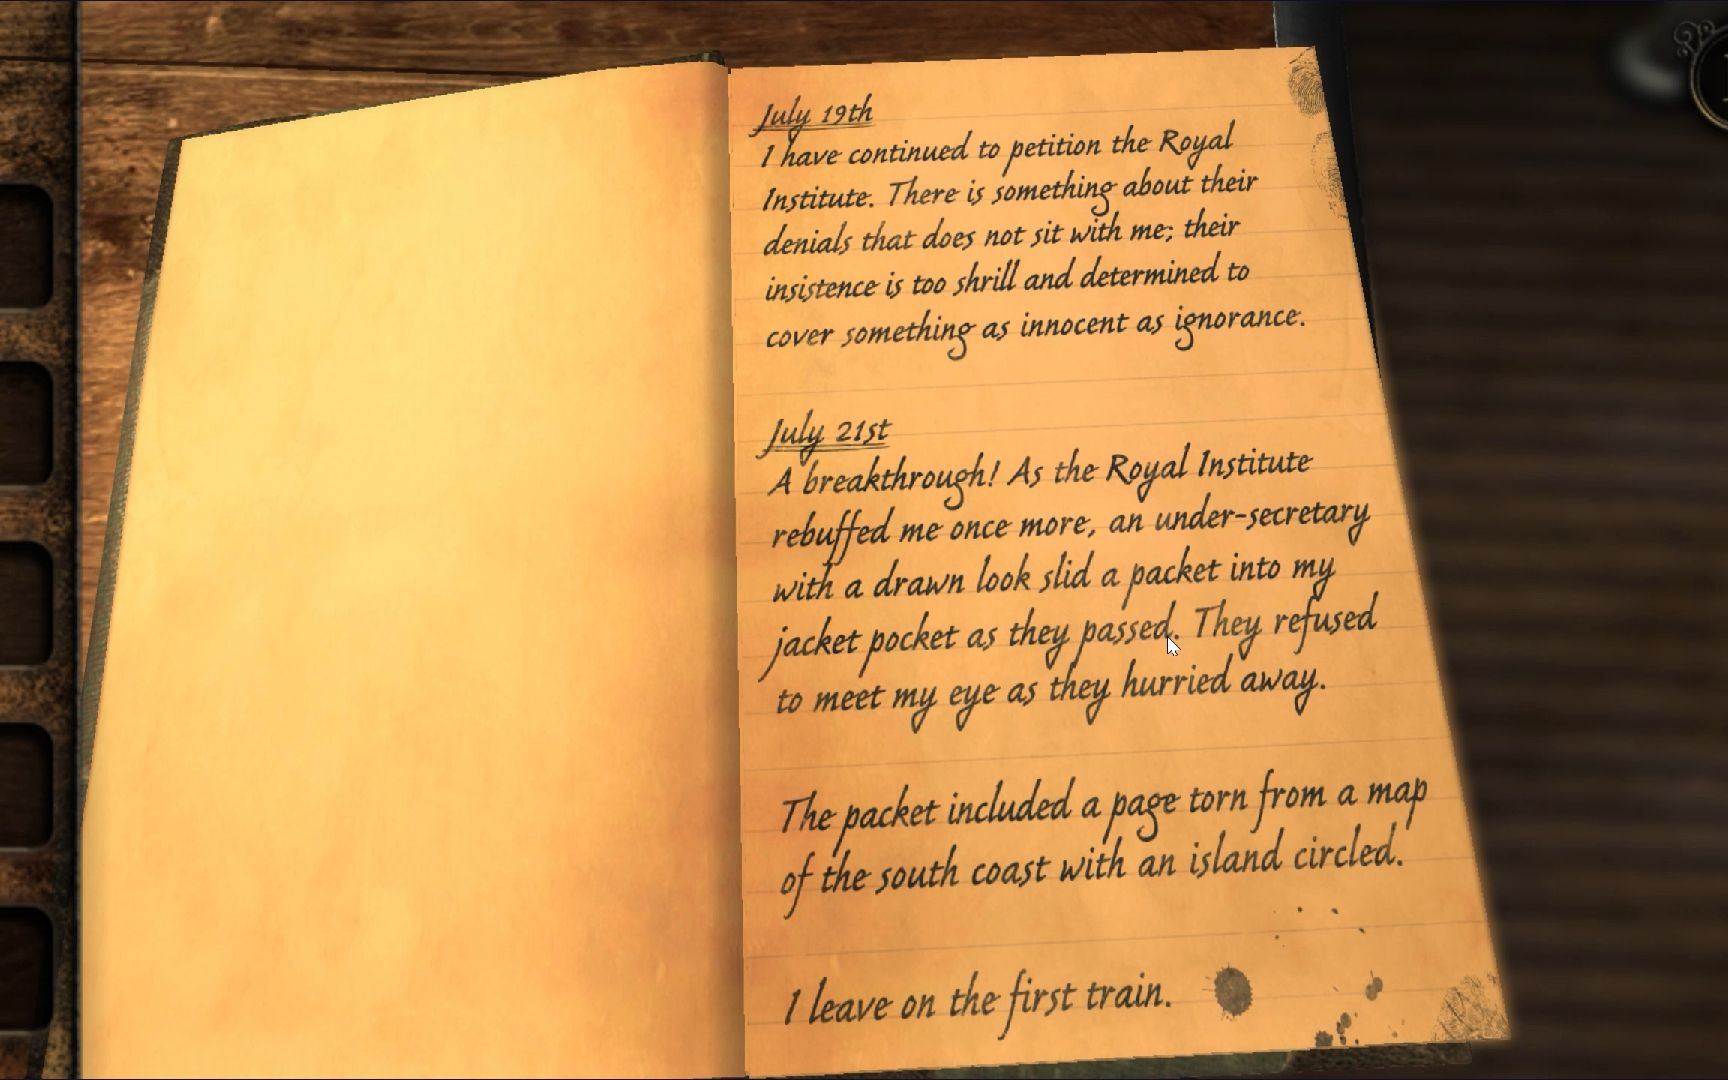 July 19th
I have continued to petition the Royal
Institute. There is something about their
denials that does not sit with me; their
insistence is too shrill and determined to
cover something as innocent as ignorance.
July 21st
A breakthrough! As the Royal Institute
rebuffed me once more, an under-secretary
with a drawn look slid a packet into my
jacket pocket as they passed. They refused
to meet my eye as they hurried away.
The packet included a page torn from a map
of the south coast with an island circled.
I leave on the first train.